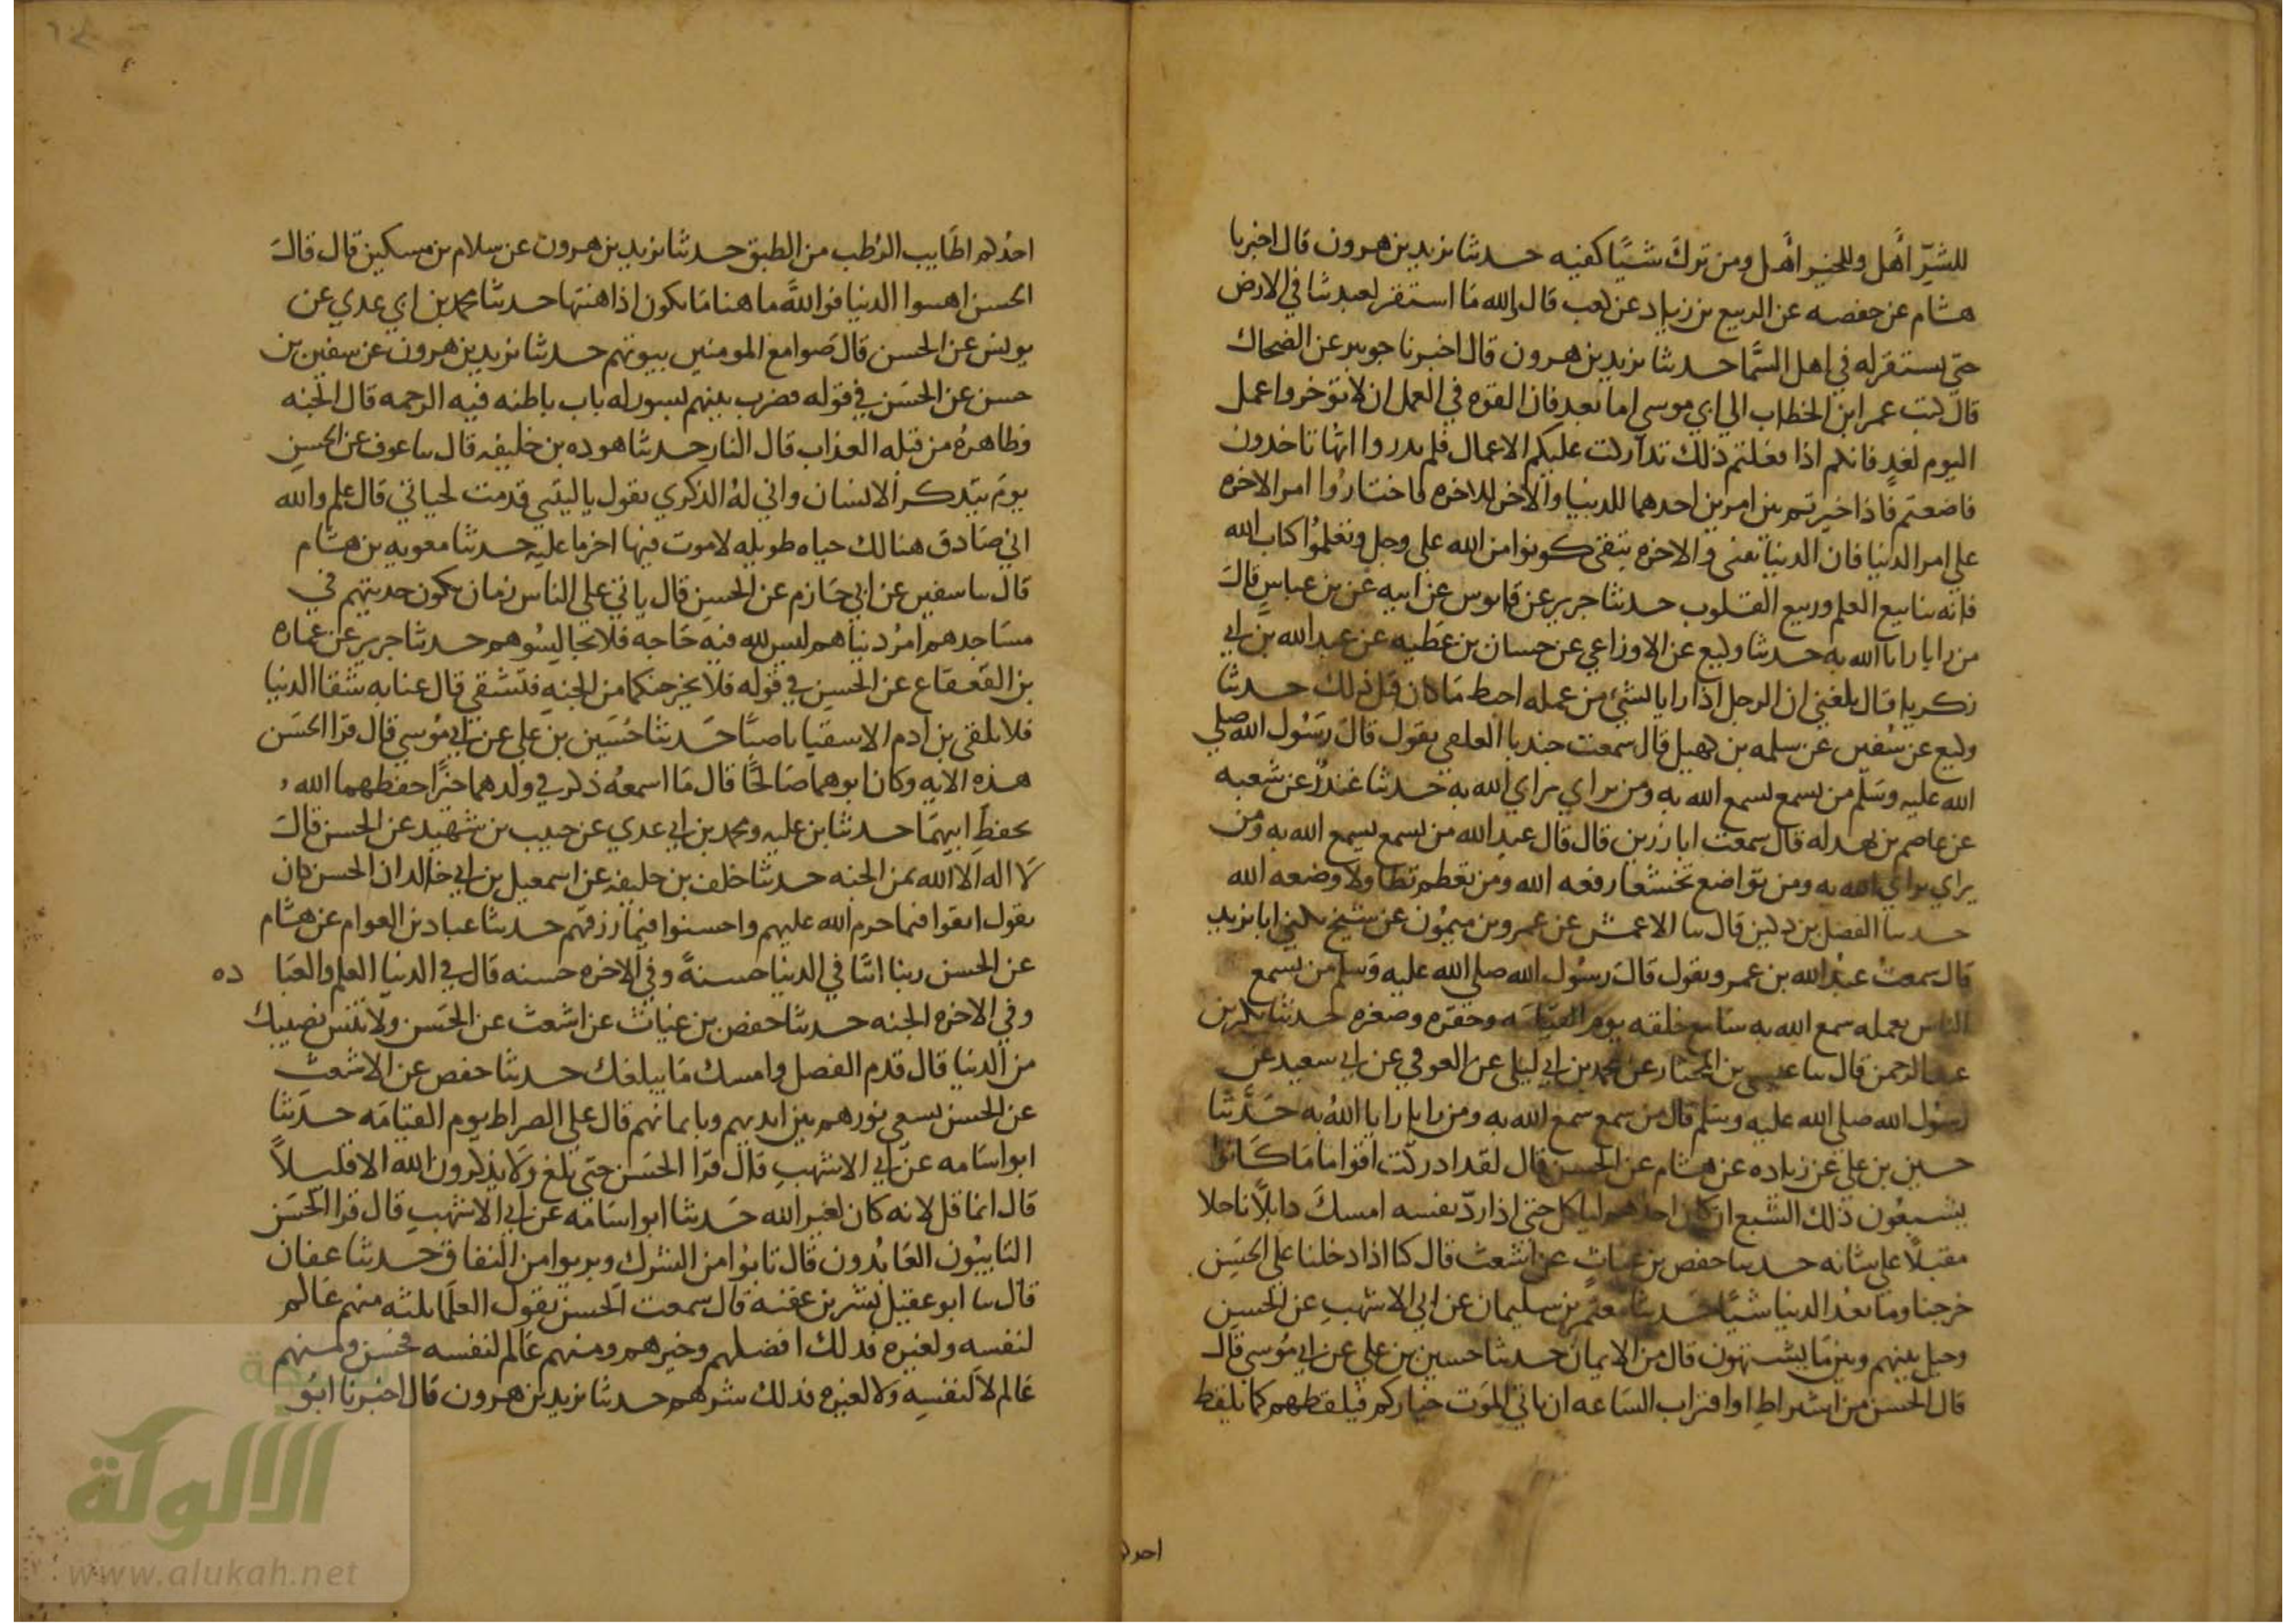 للشر أهل وللخير أهل ومن ترك شيا كفيه حدثنا يزيد بن هرون قال اخبرنا
هشام عن حفصه عن الربيع بن زياد عن كعب قال والله ما استقر لعبد ثنا في الارض
حتي يستقر له في اهل السما حدثنا يزيد بن هرون قال اخبرنا جويبر عن الضحاك
قال كتب عمر ابن الخطاب الي ابي موسي اما بعد فان القوه في العمل ان لا توخروا عمل
اليوم لغد فانكم اذا فعلتم ذلك تداركت عليكم الاعمال فلم تدروا ايها تاخذون
فاضعتم فاذا خيرتم بين امرين احدهما للدنيا والآخر للاخره فاختاروا امر الاخره
علي امر الدنيا فان الدنيا تفني والاخره تبقي كونوا من الله علي وجل وتعلموا كتاب الله
فانه ينابيع العلم وربيع القلوب حدثنا جرير عن قابوس عن ابيه عن بن عباس قال
من رايا رايا الله به حدثنا وكيع عن الاوزاعي عن حسان بن عطيه عن عبد الله بن ابي
زكريا قال بلغني ان الرجل اذا رايا بشي من عمله احبط ما كان قبل ذلك حدثنا
وكيع عن سفين عن سلمه بن كهيل قال سمعت جندبا العلقي يقول قال رسول الله صلي
الله عليه وسلم من يسمع يسمع الله به ومن يراي يراي الله به حدثنا غندر عن شعبه
عن عاصم بن بهدله قال سمعت ابا رزين قال قال عبد الله من يسمع يسمع الله به ومن
يراي يراي الله به ومن تواضع تخشعا رفعه الله ومن تعظم تطاولا وضعه الله
حدثنا الفضل بن دكين قال ثنا الاعمش عن عمرو بن ميمون عن شيخ يكني ابا يزيد
قال سمعت عبد الله بن عمرو يقول قال رسول الله صلي الله عليه وسلم من يسمع
الناس بعمله سمع الله به سامع خلقه يوم القيامه وحقره وصغره حدثنا بكر بن
عبد الرحمن قال ثنا عيسي بن المختار عن محمد بن ابي ليلي عن العوفي عن ابي سعيد عن
رسول الله صلي الله عليه وسلم قال من سمع سمع الله به ومن رايا رايا الله به حدثنا
حسين بن علي عن زياده عن هشام عن الحسن قال لقد ادركت اقواما ما كانوا
يشبعون ذلك الشبع ان كان احدهم لياكل حتي اذا رد نفسه امسك ذابلا ناحلا
مقبلا علي شانه حدثنا حفص بن غياث عن اشعث قال كنا اذا دخلنا علي الحسن
خرجنا وما نعد الدنيا شيا حدثنا معتمر بن سليمان عن ابي الاشهب عن الحسن
وحيل بينهم وبين ما يشتهون قال من الايمان حدثنا حسين بن علي عن ابي موسي قال
قال الحسن من اشراط او اقتراب الساعه ان ياتي الموت خياركم فيلقطهم كما يلقط
احدكم
احدكم اطايب الرطب من الطبق حدثنا يزيد بن هرون عن سلام بن مسكين قال قال
الحسن اهينوا الدنيا فوالله ما هنا ما تكون اذا هنتها حدثنا محمد بن ابي عدي عن
يونس عن الحسن قال صوامع المومنين بيوتهم حدثنا يزيد بن هرون عن سفين بن
حسن عن الحسن في قوله فضرب بينهم بسور له باب باطنه فيه الرحمه قال الجنه
وظاهره من قبله العذاب قال النار حدثنا هوده بن خليفه قال ثنا عوف عن الحسن
يوم يتذكر الانسان واني له الذكري يقول يا ليتني قدمت لحياتي قال علم والله
اني صادق هنالك حياه طويله لا موت فيها اخر ما عليه حدثنا معويه بن هشام
قال ثنا سفين عن ابي حازم عن الحسن قال ياتي علي الناس زمان يكون حديثهم في
مساجدهم امر دنياهم ليس لله فيه حاجه فلا تجاليسوهم حدثنا جرير عن عماره
بن القعقاع عن الحسن في قوله فلا يخرجنكما من الجنه فتشقي قال عنا به شقا الدنيا
فلا تلقي بن ادم الا شقيا ناصبا حدثنا حسين بن علي عن ابي موسي قال قرا الحسن
هذه الايه وكان ابوهما صالحا قال ما اسمعه ذكر في ولدهما خيرا حفظهما الله
بحفظ ابيهما حدثنا بن عليه ومحمد بن ابي عدي عن حبيب بن شهيد عن الحسن قال
لا اله الا الله ثمن الجنه حدثنا خلف بن خليفه عن اسمعيل بن ابي خالد ان الحسن كان
يقول اتقوا فيما حرم الله عليهم واحسنوا فيما رزقهم حدثنا عباد بن العوام عن هشام
عن الحسن ربنا اتنا في الدنيا حسنة وفي الاخره حسنه قال في الدنيا العلم والعبا ده
وفي الاخره الجنه حدثنا حفص بن غياث عن اشعث عن الحسن ولا تنس نصيبك
من الدنيا قال قدم الفضل وامسك ما يبلغك حدثنا حفص عن الاشعث
عن الحسن يسعي نورهم بين ايديهم وبايمانهم قال علي الصراط يوم القيامه حدثنا
ابو اسامه عن ابي الاشهب قال قرا الحسن حتي بلغ ولا يذكرون الله الا قليلا
قال انما قل لانه كان لغير الله حدثنا ابو اسامه عن ابي الاشهب قال قرا الحسن
التايبون العابدون قال تابوا من الشرك وبريوا من النفاق حدثنا عفان
قال ثنا ابو عقيل بشر بن عقبه قال سمعت الحسن يقول العلما ثلثه منهم عالم
لنفسه ولغيره فذلك افضلهم وخيرهم ومنهم عالم لنفسه فحسن ومنهم
عالم لا لنفسه ولا لغيره فذلك شرهم حدثنا يزيد بن هرون قال اخبرنا ابو
شبكة
الألوكة
www.alukah.net